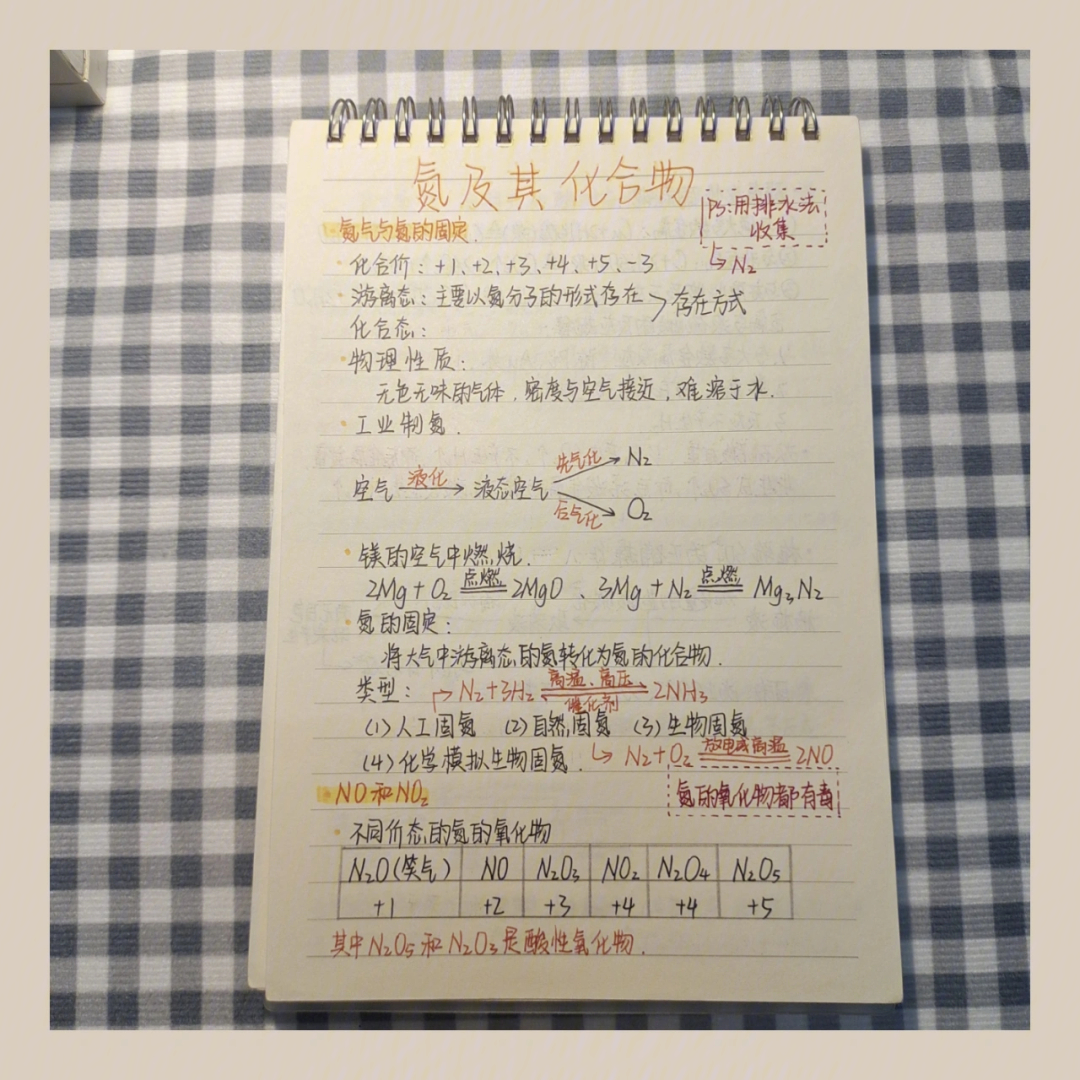 氮及其化合物
PS:用排水法
收集
↳N₂
·氮气与氮的固定.
·化合价:+1、+2、+3、+4、+5、-3
·游离态:主要以氮分子的形式存在>存在方式
化合态:
·物理性质:
无色无味的气体,密度与空气接近,难溶于水.
·工业制氮.
空气 液化→ 液态空气 先气化→ N₂
后气化→ O₂
·镁的空气中燃烧.
2Mg+O₂ 点燃═ 2MgO、3Mg+N₂ 点燃═ Mg₃N₂
·氮的固定:
将大气中游离态的氮转化为氮的化合物.
类型: ↱N₂+3H₂ 高温、高压、催化剂⇌ 2NH₃
(1)人工固氮 (2)自然固氮 (3)生物固氮
(4)化学模拟生物固氮. ↳N₂+O₂ 放电或高温═ 2NO
·NO和NO₂
氮的氧化物都有毒
·不同价态的氮的氧化物
N₂O(笑气) NO N₂O₃ NO₂ N₂O₄ N₂O₅
+1 +2 +3 +4 +4 +5
其中N₂O₅和N₂O₃是酸性氧化物.